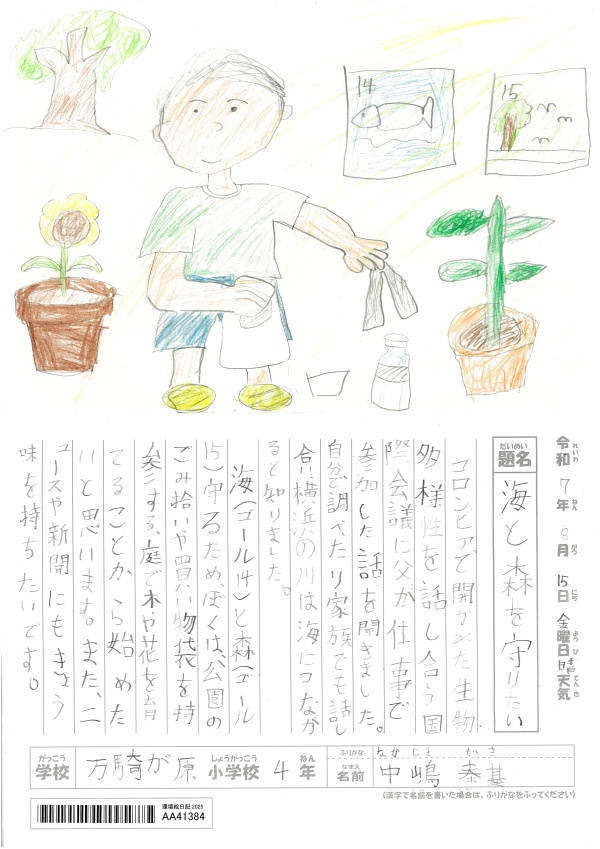 14
15
令和7年8月15日金曜日天気晴
れいわ ねん がつ にち ようび てんき
だいめい
題名 海と森を守りたい
コロンビアで開かれた生物
多様性を話し合う国
際会議に父が仕事で
参加した話を聞きました。
自分で調べたり家族でも話し
合い横浜の川は海につなが
ると知りました。
海(ゴール14)と森(ゴール
15)守るため、ぼくは、公園の
ごみ拾いや買い物袋を持
参する、庭で木や花を育
てることから始めた
いと思います。また、ニ
ュースや新聞にもきょう
味を持ちたいです。
がっこう しょうがっこう ねん
学校 万騎が原 小学校 4年
ふりがな なかじま たいき
なまえ
名前 中嶋 泰基
(漢字で名前を書いた場合は、ふりがなをふってください)
環境絵日記 2025
AA41384